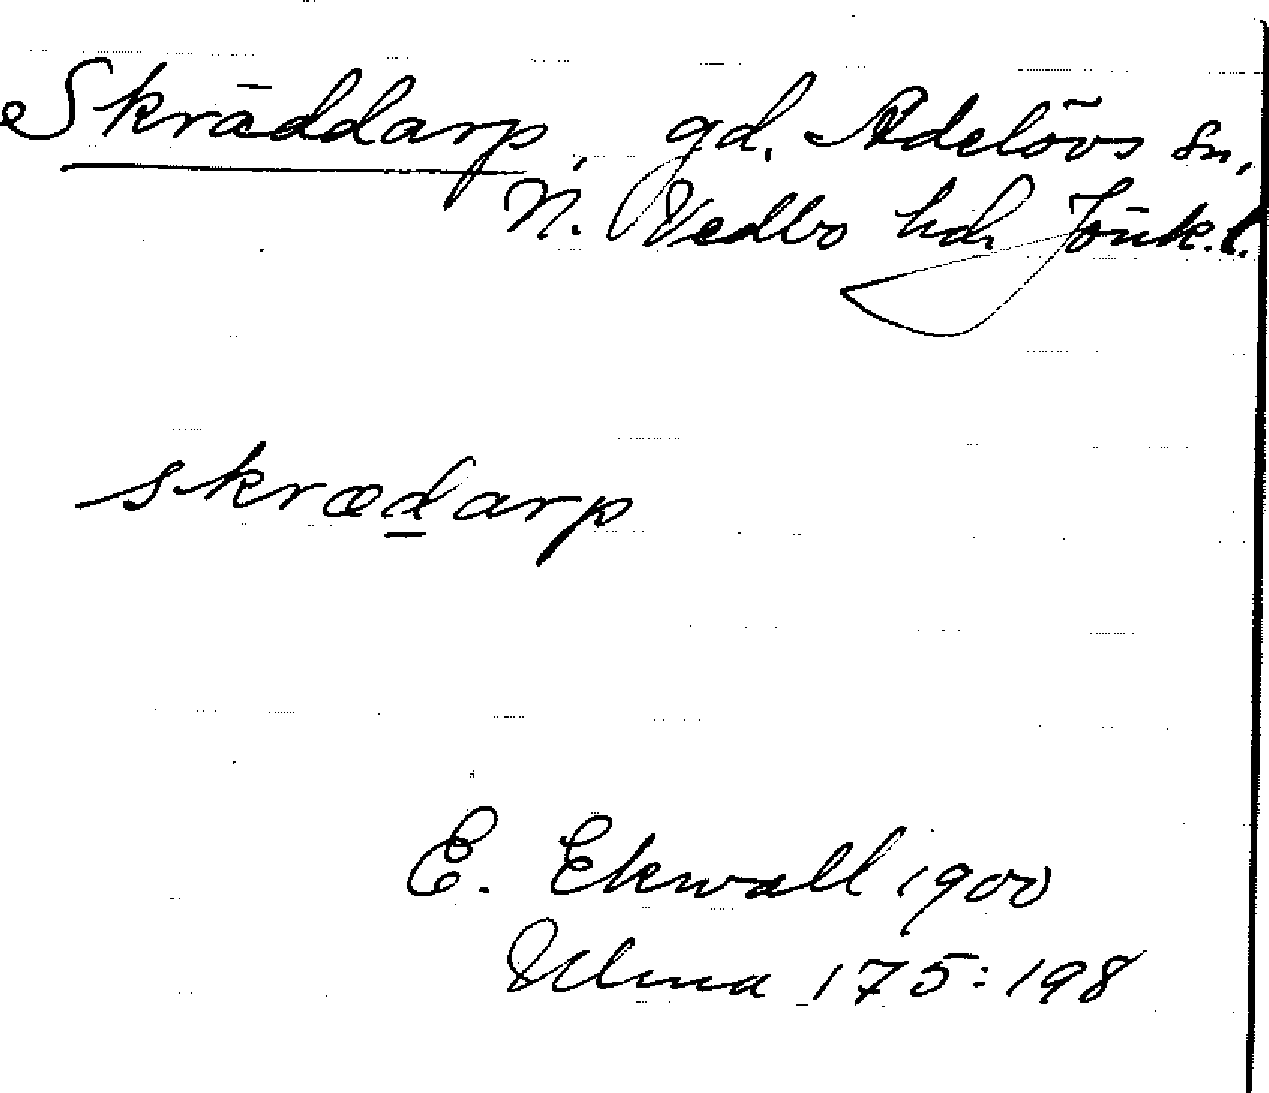 Skräddarp, gd. Adelövs sn,
N. Vedbo hd. Jönk.l.
skrædarp
E. Ekwall 1900
Ulma 175:198